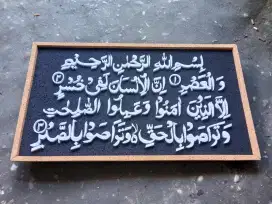 بِسْمِ اللهِ الرَّحْمٰنِ الرَّحِيْمِ
وَالْعَصْرِ ۝١ اِنَّ الْاِنْسَانَ لَفِيْ خُسْرٍ ۝٢
اِلَّا الَّذِيْنَ اٰمَنُوْا وَعَمِلُوا الصّٰلِحٰتِ
وَتَوَاصَوْا بِالْحَقِّ ەۙ وَتَوَاصَوْا بِالصَّبْرِ ۝٣